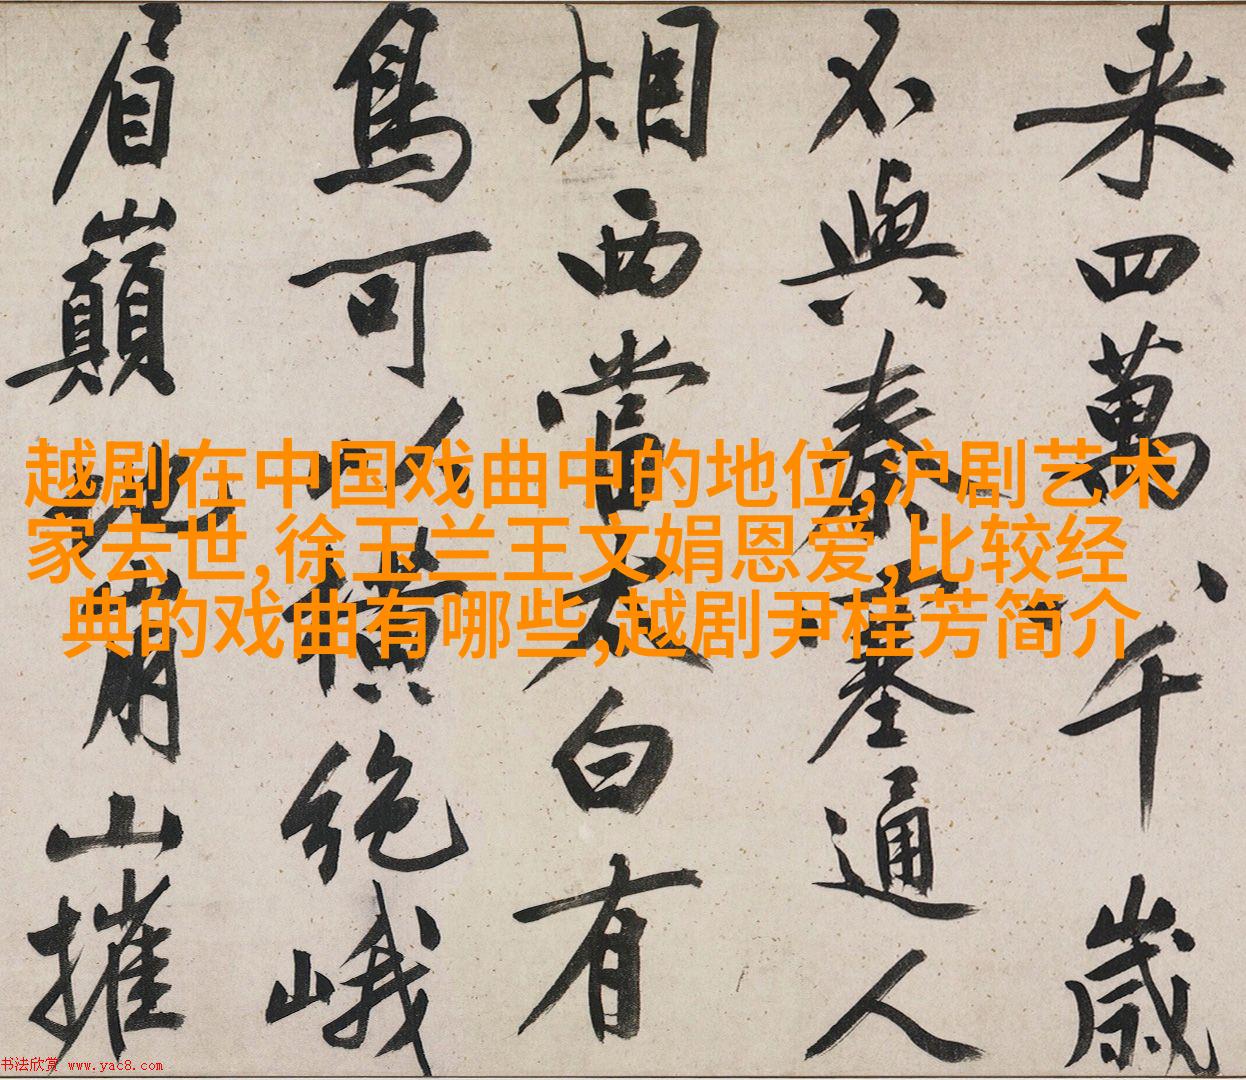 来四萬八千歲
不與秦塞通人
烟西當太白有
鳥可以橫絕峨
眉巔地崩山摧
越剧在中国戏曲中的地位,沪剧艺术
家去世,徐玉兰王文娟恩爱,比较经
典的戏曲有哪些,越剧尹桂芳简介
书法欣赏 www.yac8.com